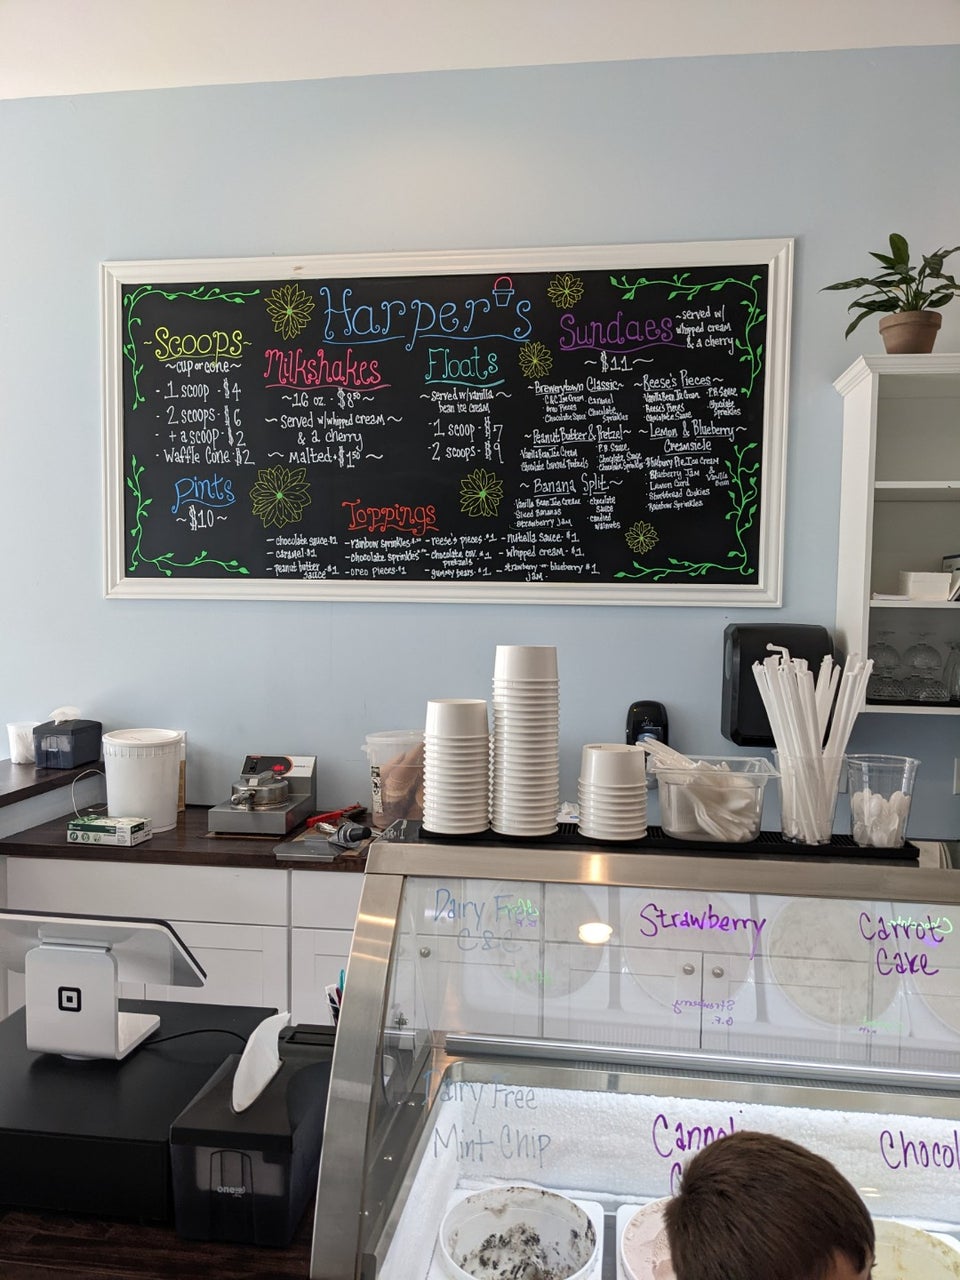 Harper's
~Scoops~
~cup or cone~
- 1 scoop - $4
- 2 scoops - $6
- + a scoop - $2
- Waffle Cone - $2
Pints
~$10~
Milkshakes
~16 oz - $8.50~
~served w/whipped cream
& a cherry~
~malted + $1.50~
Floats
served w/vanilla
bean ice cream
-1 scoop - $7
-2 scoops - $9
Sundaes
~served w/
whipped cream
& a cherry
~$11~
~Brewerytown Classic~
C&C Ice Cream
Oreo Pieces
Chocolate Sauce
Caramel
Chocolate
Sprinkles
~Peanut Butter & Pretzel~
Vanilla Bean Ice Cream
Chocolate Covered Pretzels
P.B. Sauce
Chocolate Sauce
Chocolate Sprinkles
~Banana Split~
Vanilla Bean Ice Cream
Sliced Bananas
Strawberry Jam
chocolate
Sauce
candied
walnuts
~Reese's Pieces~
Vanilla Bean Ice Cream
Reese's Pieces
Chocolate Sauce
P.B. Sauce
Chocolate
Sprinkles
~Lemon & Blueberry~
Creamsicle
Pie Ice Cream
Blueberry Jam
Lemon Curd
Shortbread Cookies
Rainbow Sprinkles
& Vanilla
Bean
Toppings
- chocolate sauce $1
- caramel $1
- peanut butter
sauce $1
- rainbow sprinkles
- chocolate sprinkles
- oreo pieces $1
- reese's pieces $1
- chocolate cov. $1
pretzels
- gummy bears $1
- nutella sauce $1
- whipped cream $1
- strawberry or blueberry $1
jam
Dairy Free
C&C
Strawberry
Carrot
Cake
Strawberry
G.F.
Dairy Free
Mint Chip
Cannoli
Chocol